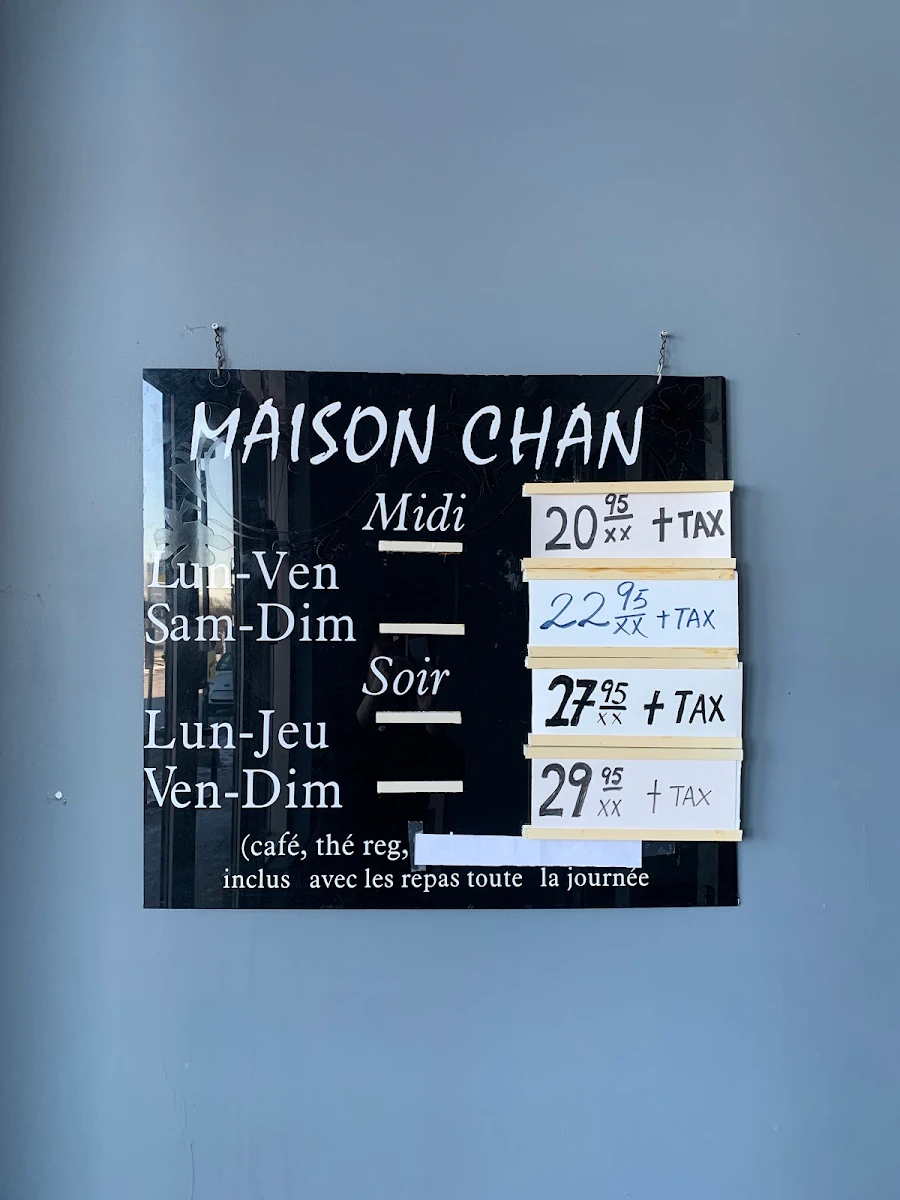 MAISON CHAN
Midi
Lun-Ven 20 95/xx + TAX
Sam-Dim 22 95/xx + TAX
Soir
Lun-Jeu 27 95/xx + TAX
Ven-Dim 29 95/xx + TAX
(café, thé reg,
inclus avec les repas toute la journée